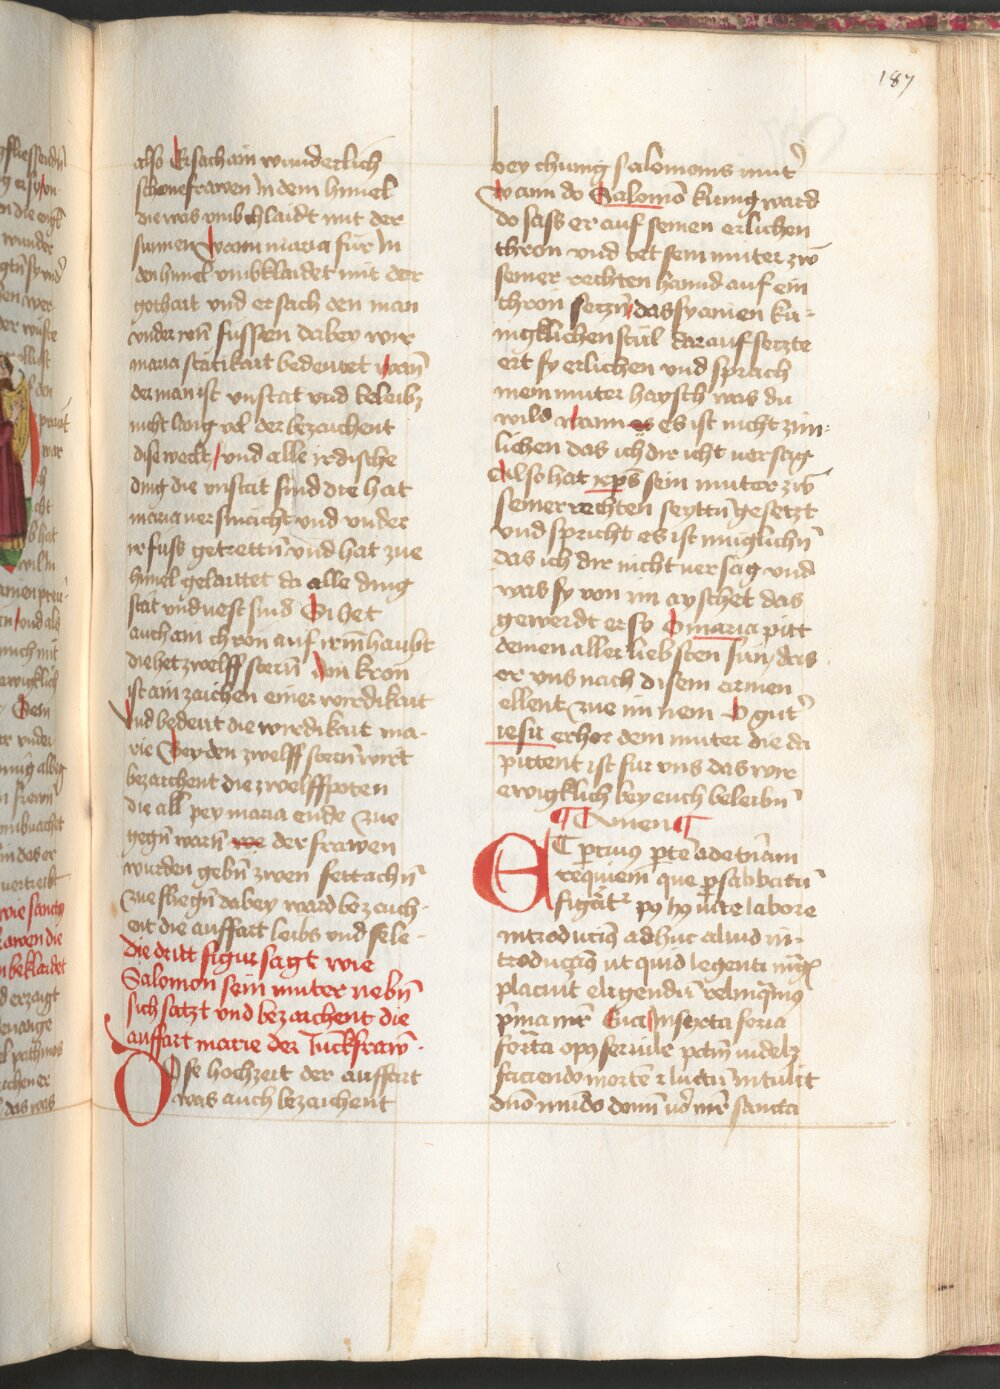 187
also Er sach ain wunderlich
schone frawen In dem himel
die was vmbchlaidt mit der
sunnen wann maria fur In
den himel vmbklaidet mit der
gothait vnd er sach den man
vnder irn̄ fussen dabey wir
maria statikait bedeutet wan̄
der man ist vnstat vnd beleibt
nicht lang vol der bezaichent
dise weltt vnd alle irdische
ding die vnstat sind die hat
maria versmacht vnd vnder
ir fuss getrettn̄ vnd hat zue
himel gelaittet da alle ding
stat vnd vest sind Si het
auch ain chron auf irm̄ haubt
die het zwelff stern̄ Von kron
ist ain zaichen einer wirdikait
Vnd bedeut die wirdikait ma-
rie Bey den zwelff stern̄ wirt
bezaichent die zwelffpoten
die all pey maria ende zue
gegn̄ warn̄ der frawen
wurden gebn̄ zwen fettachn̄
zue fliegn̄ dabey ward bezeich-
ent die auffart leibs vnd sele -
die dritt figur sagt wie
Salomon sein muter nebn̄
sich satzt vnd bezaichent die
auffart marie der Junckfraw̄ .
Dise hochzeit der auffart
was auch bezaichent
bey chunig salomonis mut̉
wann do Salomō kunig ward
do sass er auf seinen erlichen
thron vnd tet sein muter zw̄
seiner rechten hannd auf ein
thron setzn̄ das sy ainen ku-
nigklichen stul darauf setzte
ert sy erlichen vnd sprach
mein muter haysch was du
wild wann es ist nicht zim-
lichen das ich dir icht versag
Also hat ieps̄ sein muter zw̄
seiner rechten seyttn̄ gesetzt
vnd spricht es ist muglichn̄
das ich dir nicht versag vnd
was sy von im ayschet das
gewerdt er sy O maria pitt
deinen aller liebsten sun das
er vns nach disem armen
ellent zue im nem O gut̉
iesu erhor dein muter die da
pittent ist fur vns das wir
ewigklich bey euch beleibn̄
¶ Amen ¶
ET
requiem que p sabbatū
labore
introduciū adhuc aliud in-
ut quid legenti
placuit eligendū relinq̄mus
Eua In sexta feria
opus seruile
faciendo mortē luctū intulit
sancta